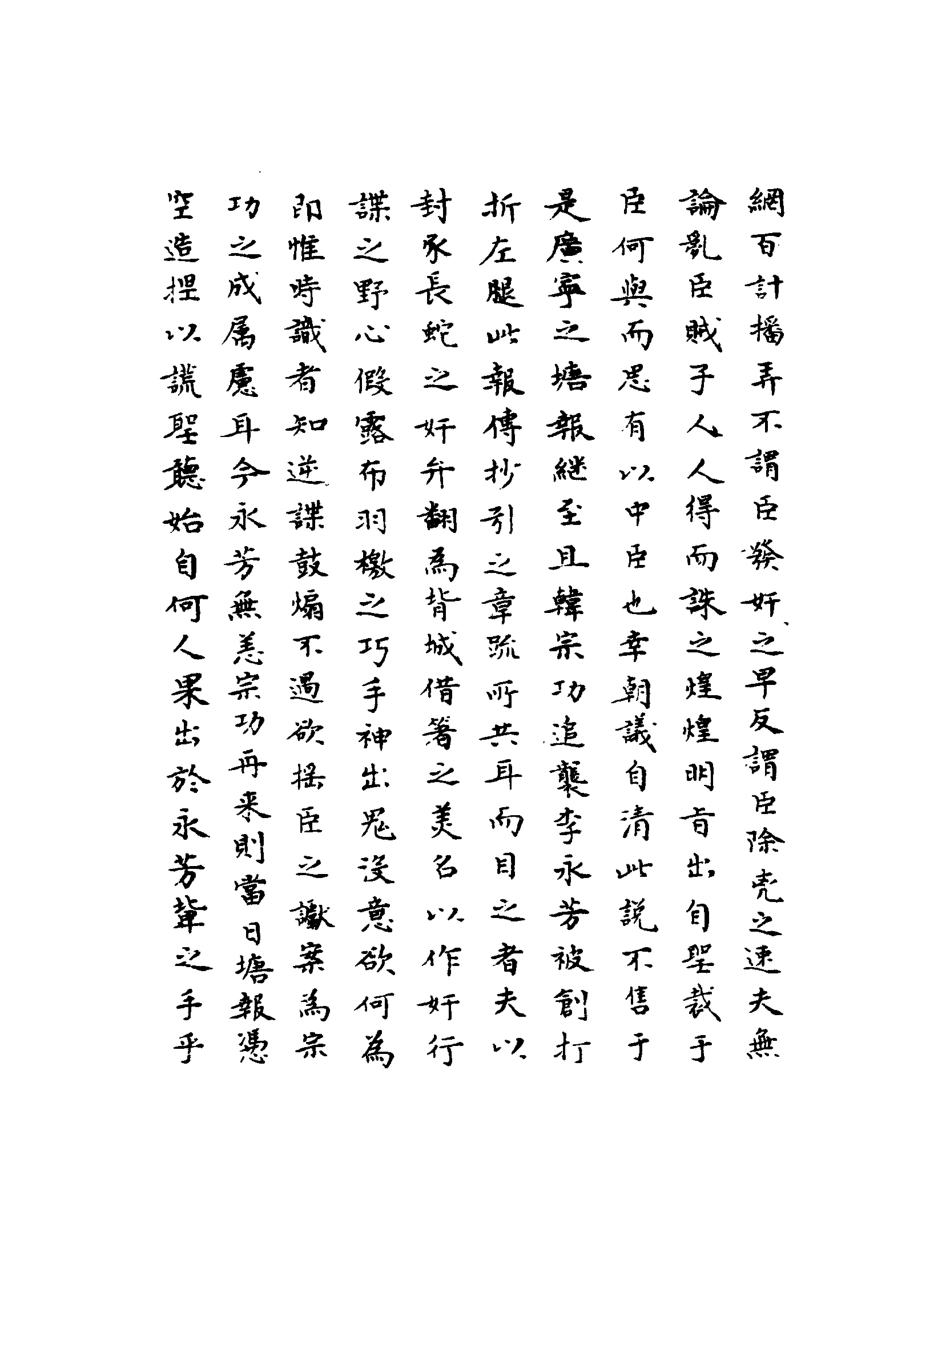 網百計播弄不謂臣發奸之早反謂臣除兇之速夫無
論亂臣賊子人人得而誅之煌煌明旨出自聖裁于
臣何與而思有以中臣也幸朝議自清此說不售于
是廣寧之塘報継至且韓宗功追襲李永芳被創打
折左腿此報傳抄引之章疏所共耳而目之者夫以
封豕長蛇之奸弁翻為背城借箸之美名以作奸行
諜之野心假露布羽檄之巧手神出鬼沒意欲何為
即惟時識者知逆謀鼓煽不過欲搖臣之讞案為宗
功之成属慮耳今永芳無恙宗功再来則當日塘報憑
空造捏以謊聖聽始自何人果出於永芳輩之手乎